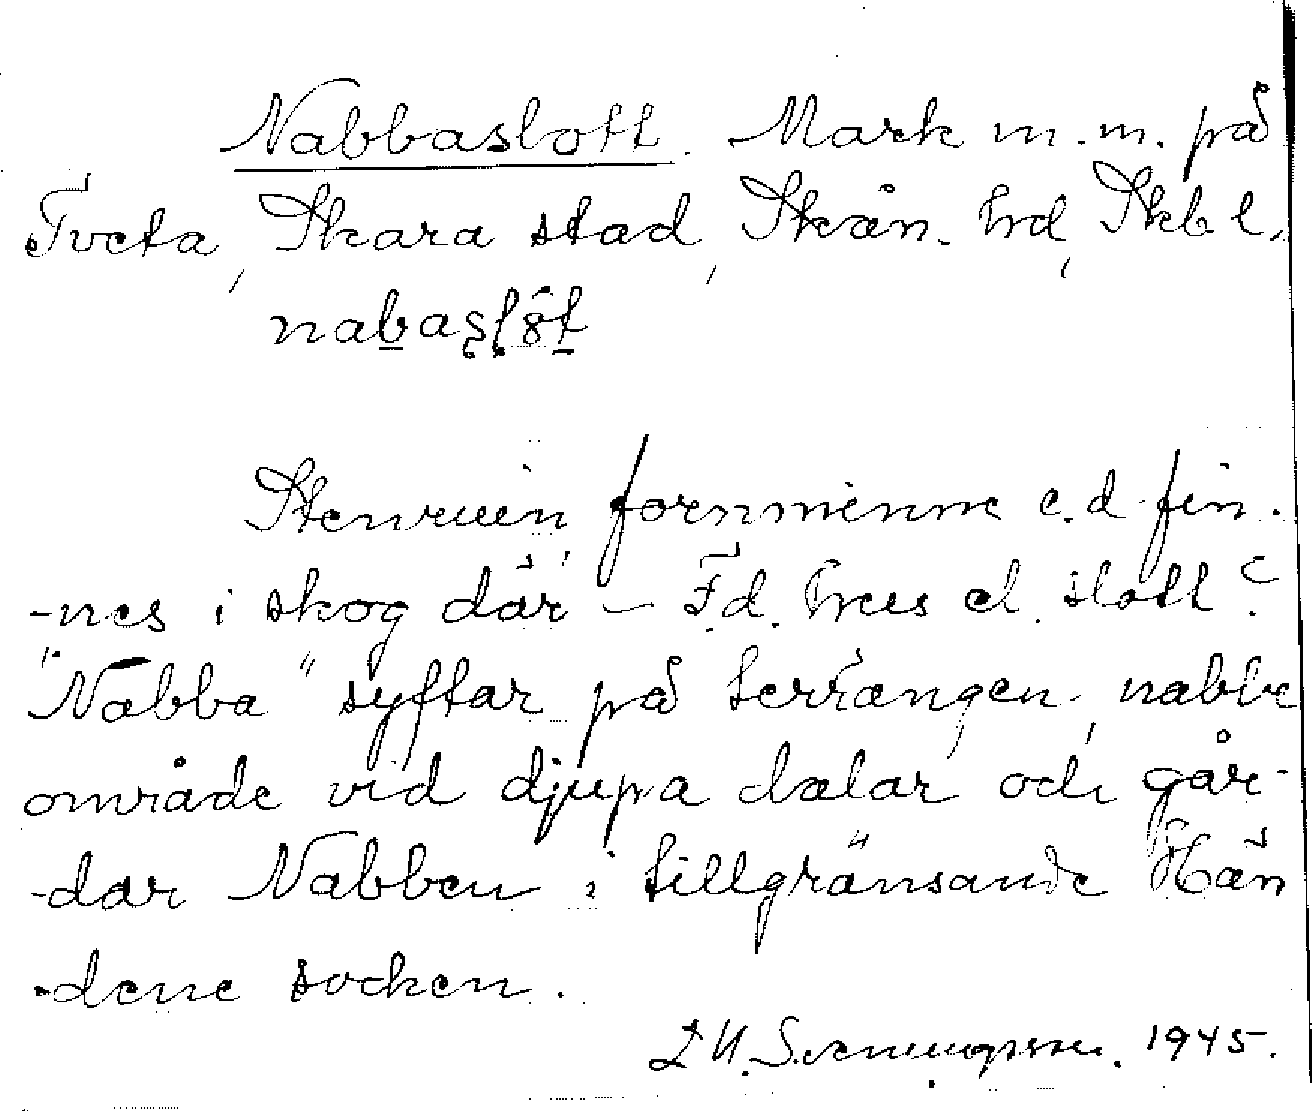 Nabbaslott. Mark m.m. på
Tveta, Skara stad, Skån. hd, Skb l.
nabaslöt
Stenruin fornminne e.d. fin-
-nes i skog där – F.d. hus el. slott?
"Nabba" syftar på terrängen, nabbe
område vid djupa dalar och går-
-dar Nabben i tillgränsande Hän
-dene socken.
1945.